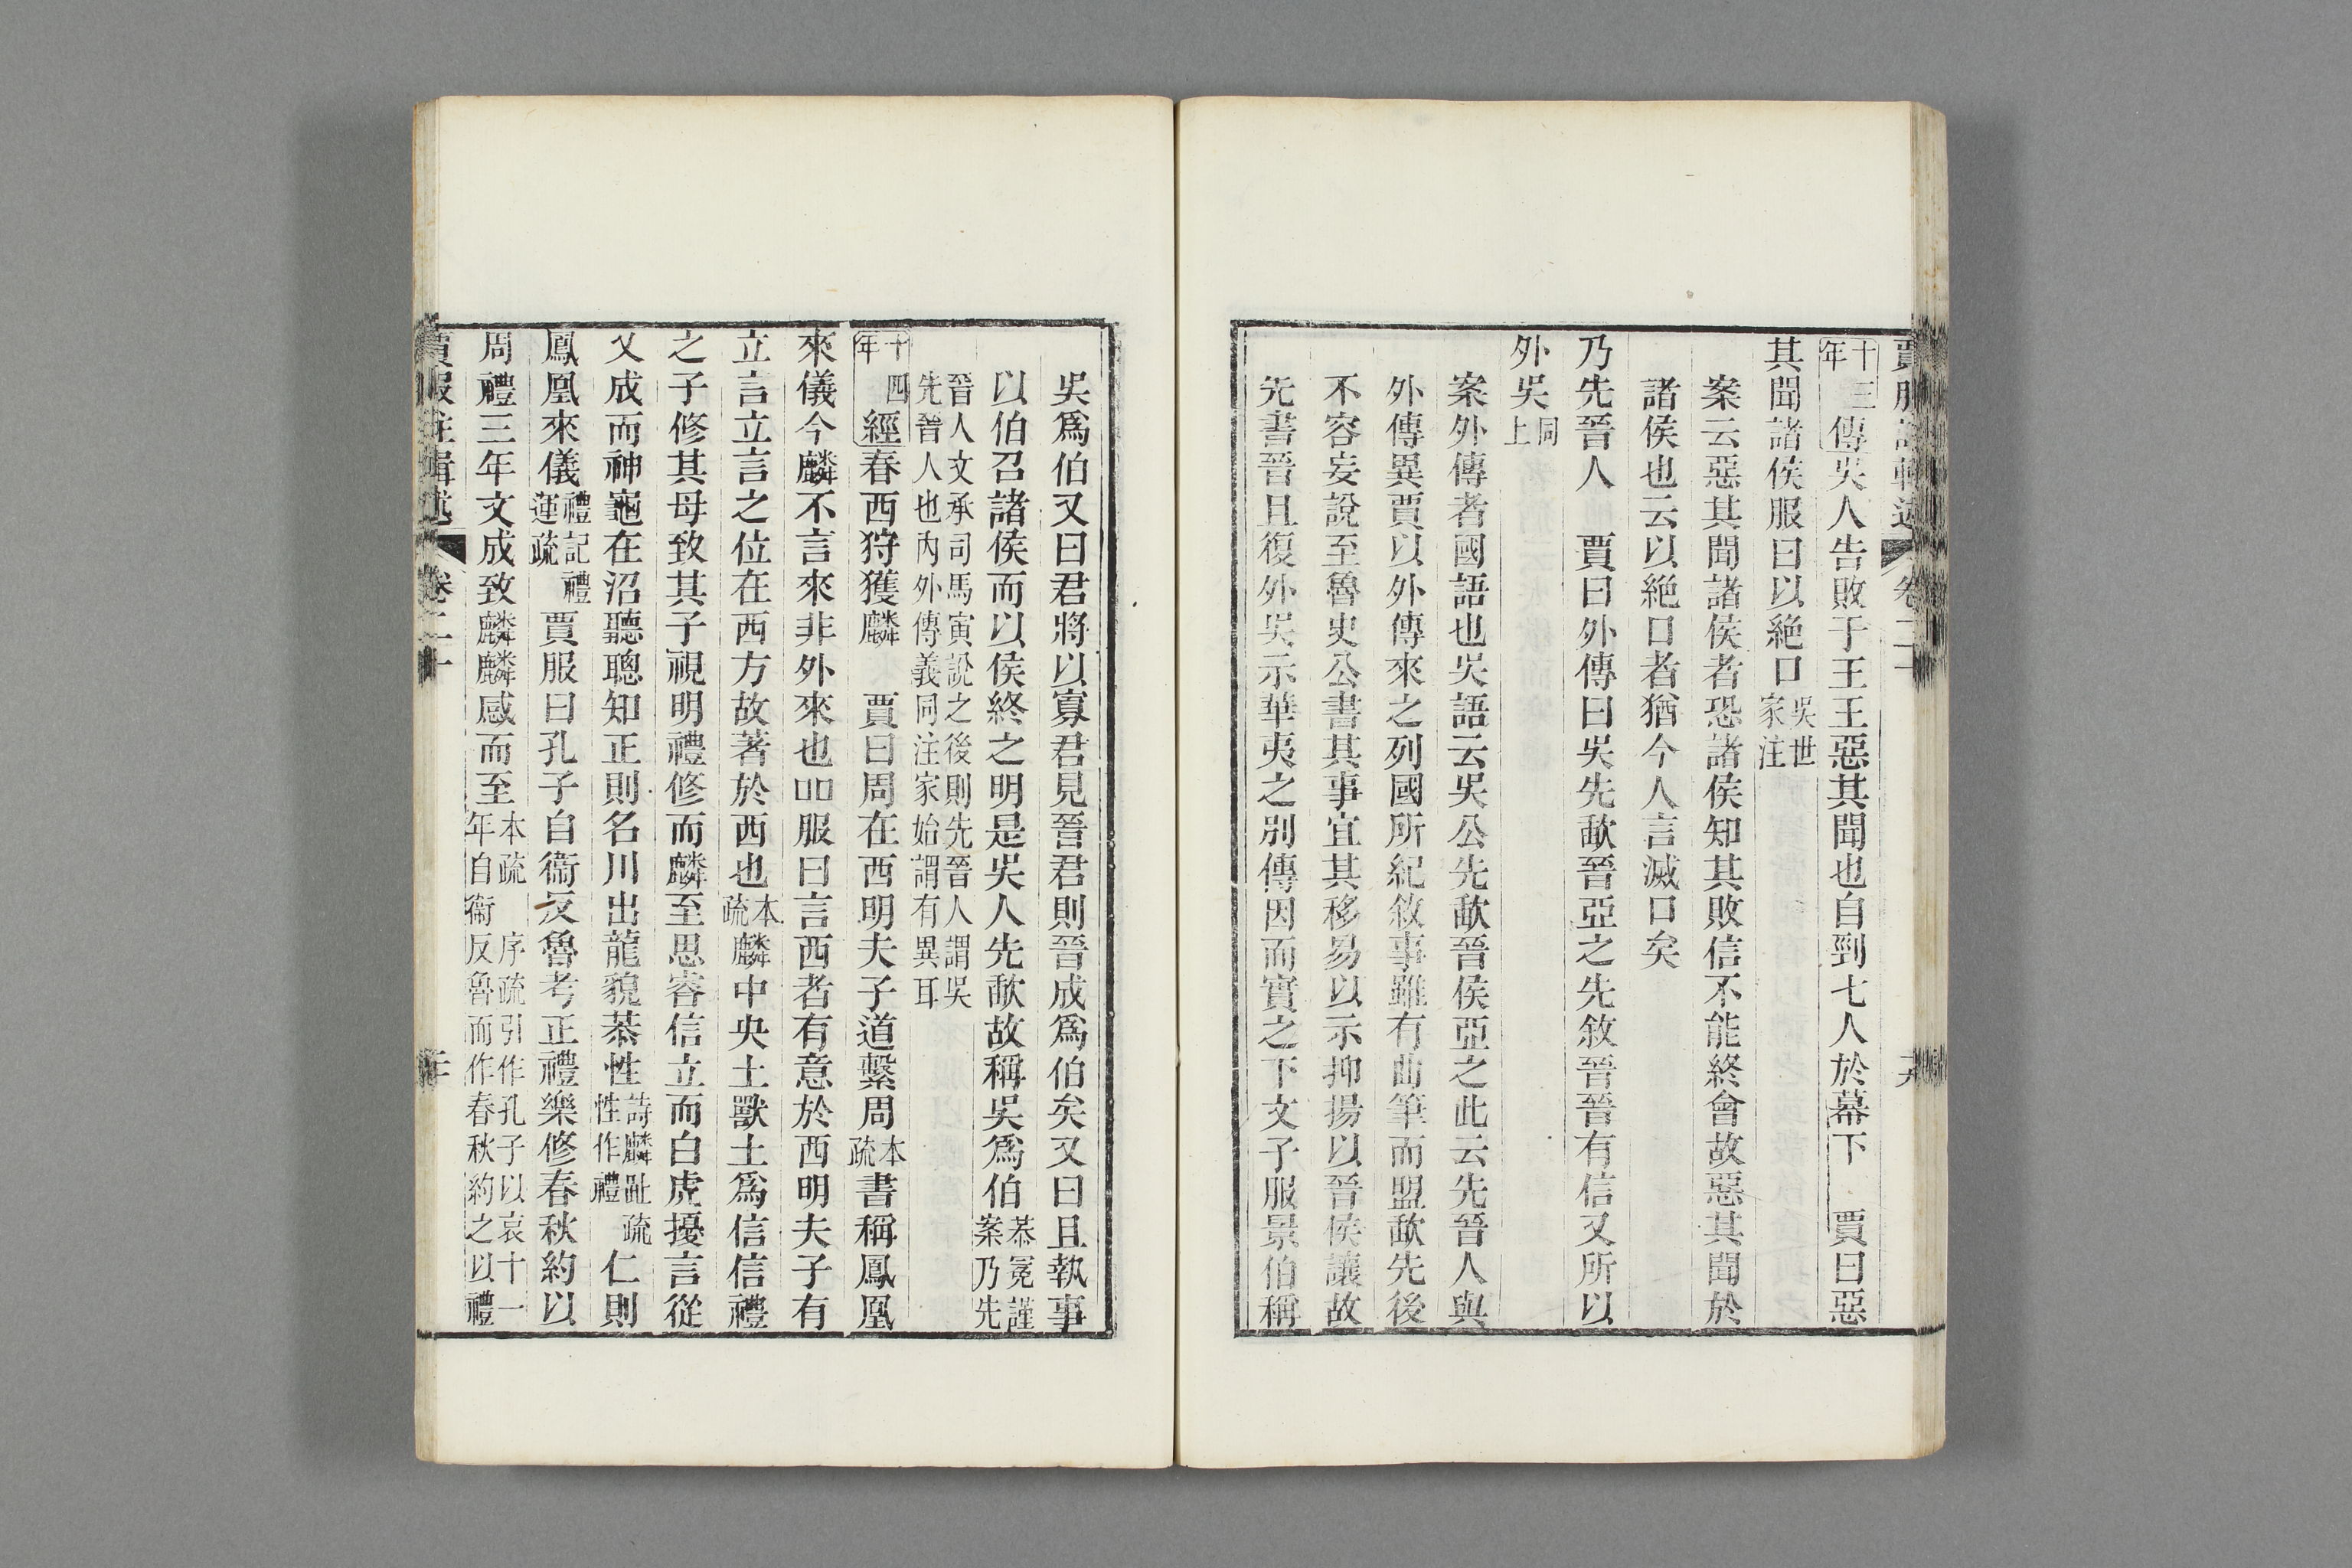 賈服註輯述 卷二十 十九
十三年傳吳人告敗于王王惡其聞也自剄七人於幕下 賈曰惡
其聞諸侯服曰以絶口吳世家注
案云惡其聞諸侯者恐諸侯知其敗信不能終會故惡其聞於
諸侯也云以絶口者猶今人言滅口矣
乃先晉人 賈曰外傳曰吳先歃晉亞之先敘晉晉有信又所以
外吳同上
案外傳者國語也吳語云吳公先歃晉侯亞之此云先晉人與
外傳異賈以外傳來之列國所紀敘事雖有曲筆而盟歃先後
不容妄說至魯史公書其事宜其移易以示抑揚以晉侯讓故
先書晉且復外吳示華夷之別傳因而實之下文子服景伯稱
吳爲伯又曰君將以寡君見晉君則晉成爲伯矣又曰且執事
以伯召諸侯而以侯終之明是吳人先歃故稱吳爲伯恭冕謹案乃先
晉人文承司馬寅訟之後則先晉人謂吳先晉人也內外傳義同注家始謂有異耳
十四年經春西狩獲麟 賈曰周在西明夫子道繫周本疏書稱鳳凰
來儀今麟不言來非外來也吅服曰言西者有意於西明夫子有
立言立言之位在西方故著於西也本疏麟中央土獸土爲信信禮
之子修其母致其子視明禮修而麟至思睿信立而白虎擾言從
乂成而神龜在沼聽聰知正則名川出龍貌恭性詩麟趾疏性作禮仁則
鳳凰來儀禮記禮運疏賈服曰孔子自衞反魯考正禮樂修春秋約以
周禮三年文成致麟麟感而至本疏 序疏引作孔子以哀十一年自衞反魯而作春秋約之以禮
賈服註輯述 卷二十 二十